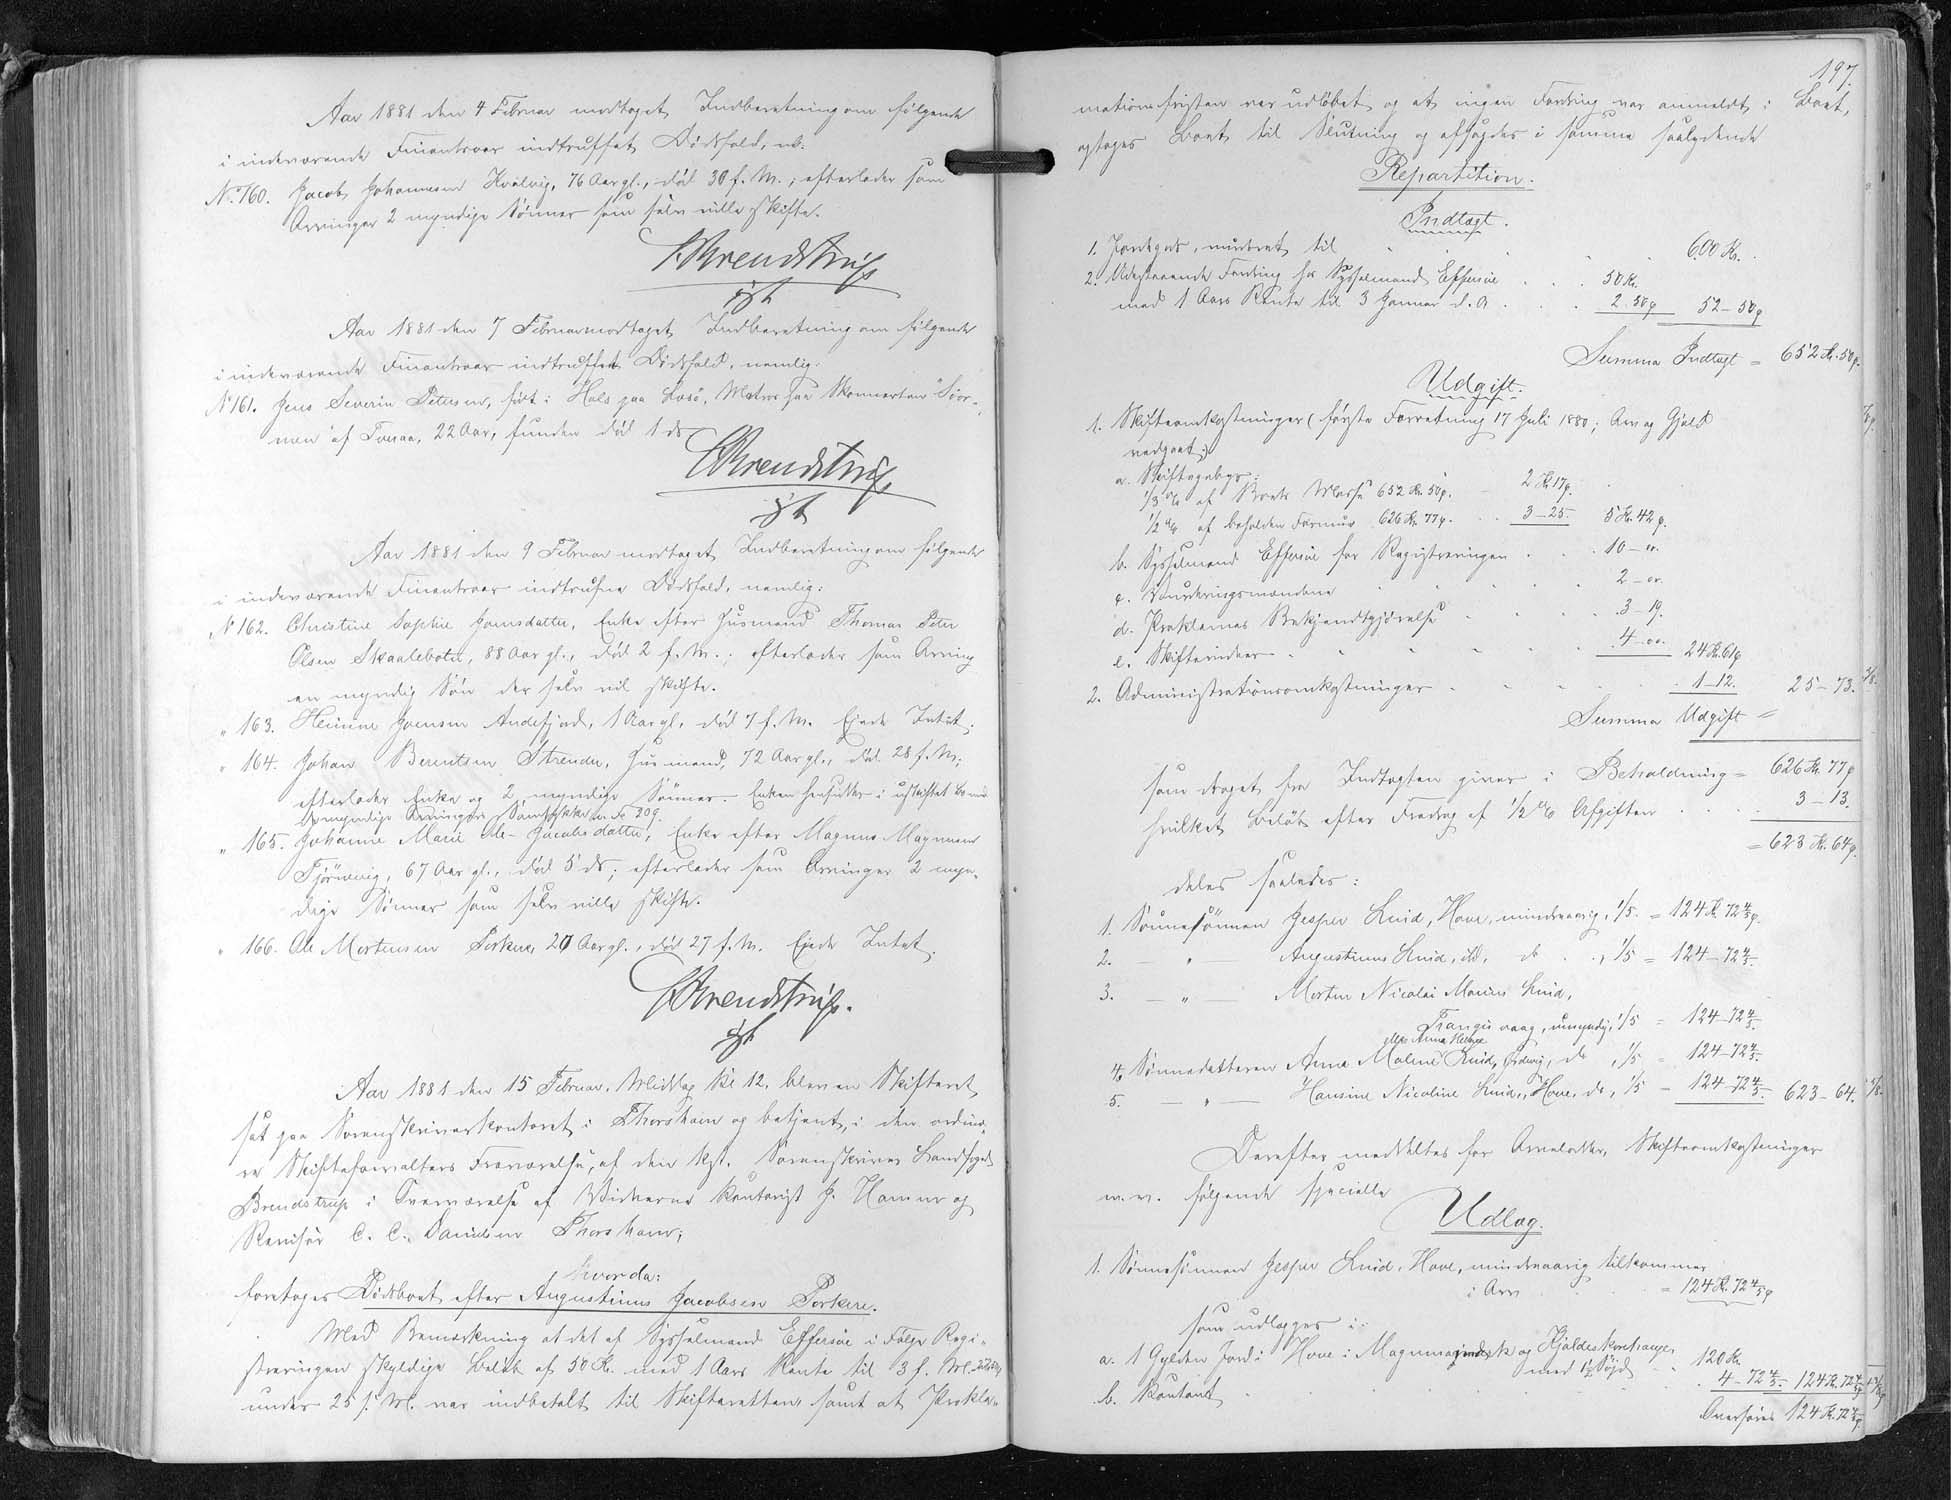 Aar 1881 den 4 Februar modtaget Indberetning om følgende
i indeværende Finantsaar indtruffet Dødsfald, nb.
No 160. Jacob Johannesen Kvalvig, 76 Aar gl., død 30 f. M.; efterlader som
Arvinger 2 myndige Sønner som selv ville skifte.
CBrendstrup
Aar 1881 den 7 Februar modtaget Indberetning om følgende
i indeværende Finantsaar indtruffet Dødsfald, nemlig:
No 161. Jens Severin Petersen, født i Hals paa Læsø, Matros paa Skonnerten
af 22 Aar, funden død 1 ds.
CBrendstrup
Aar 1881 den 9 Februar modtaget Indberetning om følgende
i indeværende Finantsaar indtrufne Dødsfald, nemlig:
No 162. Christine Sophie Joensdatter, Enke efter Husmand Thomas Peter
Olsen Skaalebotn, 88 Aar gl., død 2 f. M.; efterlader som Arving
en myndig Søn der selv vil skifte.
" 163. Heinine Joensen Andefjord, 1 Aar gl., død 7 f. M. Ejede Intet.
" 164. Johan Berentsen Strender, Husmand, 72 Aar gl., død 28 f. M.;
efterlader Enke og 2 myndige Sønner. Enken hensidder i uskiftet Bo med
de myndige Arvingers Samtykke 209.
" 165. Johanne Marie Jacobsdatter, Enke efter Magnus Magnussen
Tjørnevig, 67 Aar gl., død 5 ds; efterlader som Arvinger 2 myn-
dige Sønner som selv ville skifte.
" 166. Ole Mortensen Porkere, 20 Aar gl., død 27 f. M. Ejede Intet.
CBrendstrup.
Aar 1881 den 15 Februar, Middag Kl 12, blev en Skifteret
sat paa Sorenskriverkontoret i Thorshavn og betjent, i den ordinæ-
re Skifteforvalters Fraværelse, af den kst. Sorenskriver Landfoged
Brendstrup i Overværelse af Vidnerne Kontorist J. Hammer og
Revisor C. C. Danielsen Thorshavn;
hvorda:
foretoges Dødsboet efter Augustinus Jacobsen Porkere.
Med Bemærkning at det af Sysselmand Effersøe i Følge Regi-
streringen skyldige Beløb af 50 Kr. med 1 Aars Rente til 3 f. M.
under 25 f. M. var indbetalt til Skifteretten samt at Prokla-
197.
mationsfristen var udløbet og at ingen Fordring var anmeldt i Boet,
optoges Boet til Slutning og afsagdes i samme saalydende
Repartition.
Indtægt.
1. Jordegods, vurderet til . . . 600 Kr.
2. Udestaaende Fordring hos Sysselmand Effersøe . . . 50 Kr.
med 1 Aars Rente til 3 Januar d. A. . . . 2.50 ø 52 - 50 ø
Summa Indtægt = 652 Kr. 50 ø.
Udgift.
1. Skifteomkostninger (første Forretning 17 Juli 1880; Arv og Gjæld
vedgaaet:)
a. Skifteafgift:
1/3 % af Boets Masse 652 Kr. 50 ø. - 2 Kr. 17 ø.
1/2 % af beholden Formue 626 Kr. 77 ø. . . 3 - 25. 5 Kr. 42 ø.
b. Sysselmand Effersøe for Registreringen . . . 10 - "
c. Vurderingsmændene . . . 2 - "
d. Proklamas Bekjendtgjørelse . . . 3 - 19.
e. Skiftevidner . . . 4 - 00 24 Kr. 61 ø
2. Administrationsomkostninger . . . 1 - 12. 25 - 73.
Summa Udgift =
som draget fra Indtægten giver i Beholdning = 626 Kr. 77 ø
hvilket Beløb efter Fradrag af 1/2 % Afgiften . . . 3 - 13.
= 623 Kr. 64 ø.
deles saaledes:
1. Sønnesønnen Jesper Luid, Hove, mindreaarig, 1/5. = 124 Kr. 72 4/5 ø.
2. — " — Augustinus Luid, ibd, do . ., 1/5 = 124 - 72 4/5.
3. — " — Morten Nicolai Marius Luid,
Frangisvaag, umyndig, 1/5 = 124 - 72 4/5.
4. Sønnedatteren Anna Malene Luid, do, 1/5 = 124 - 72 4/5.
5. — " — Hansine Nicoline Luid, Hove, do, 1/5 = 124 - 72 4/5. 623 - 64.
Derefter meddeltes for Arvelodder, Skifteomkostninger
m. m. følgende specielle
Udlæg.
1. Sønnesønnen Jesper Luid, Hove, mindreaarig tilkommer
i Arv . . . = 124 Kr. 72 4/5 ø
som udlægges i:
a. 1 Gylden Jord i Hove i og
med 120 Kr.
b. Kontant . . . 4 - 72 4/5. 124 Kr. 72 4/5 ø
Overføres 124 Kr. 72 4/5 ø.